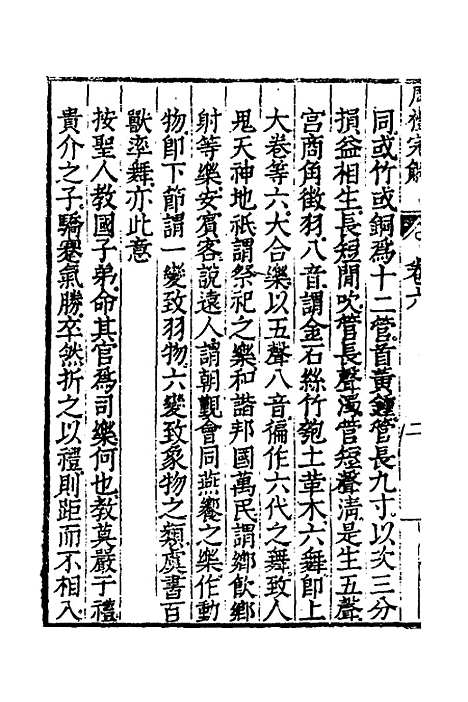 周禮完解
卷六
二
同或竹或銅爲十二管首黃鍾管長九寸以次三分
損益相生長短間吹管長聲濁管短聲清是生五聲
宮商角徵羽八音謂金石絲竹匏土革木六舞即上
大卷等六大合樂以五聲八音徧作六代之舞致人
鬼天神地祇謂祭祀之樂和諧邦國萬民謂鄉飲鄉
射等樂安賓客說遠人謂朝覲會同燕饗之樂作動
物即下節謂一變致羽物六變致象物之類虞書百
獸率舞亦此意
按聖人教國子弟命其官爲司樂何也教莫嚴于禮
貴介之子驕蹇氣勝卒然折之以禮則距而不相入